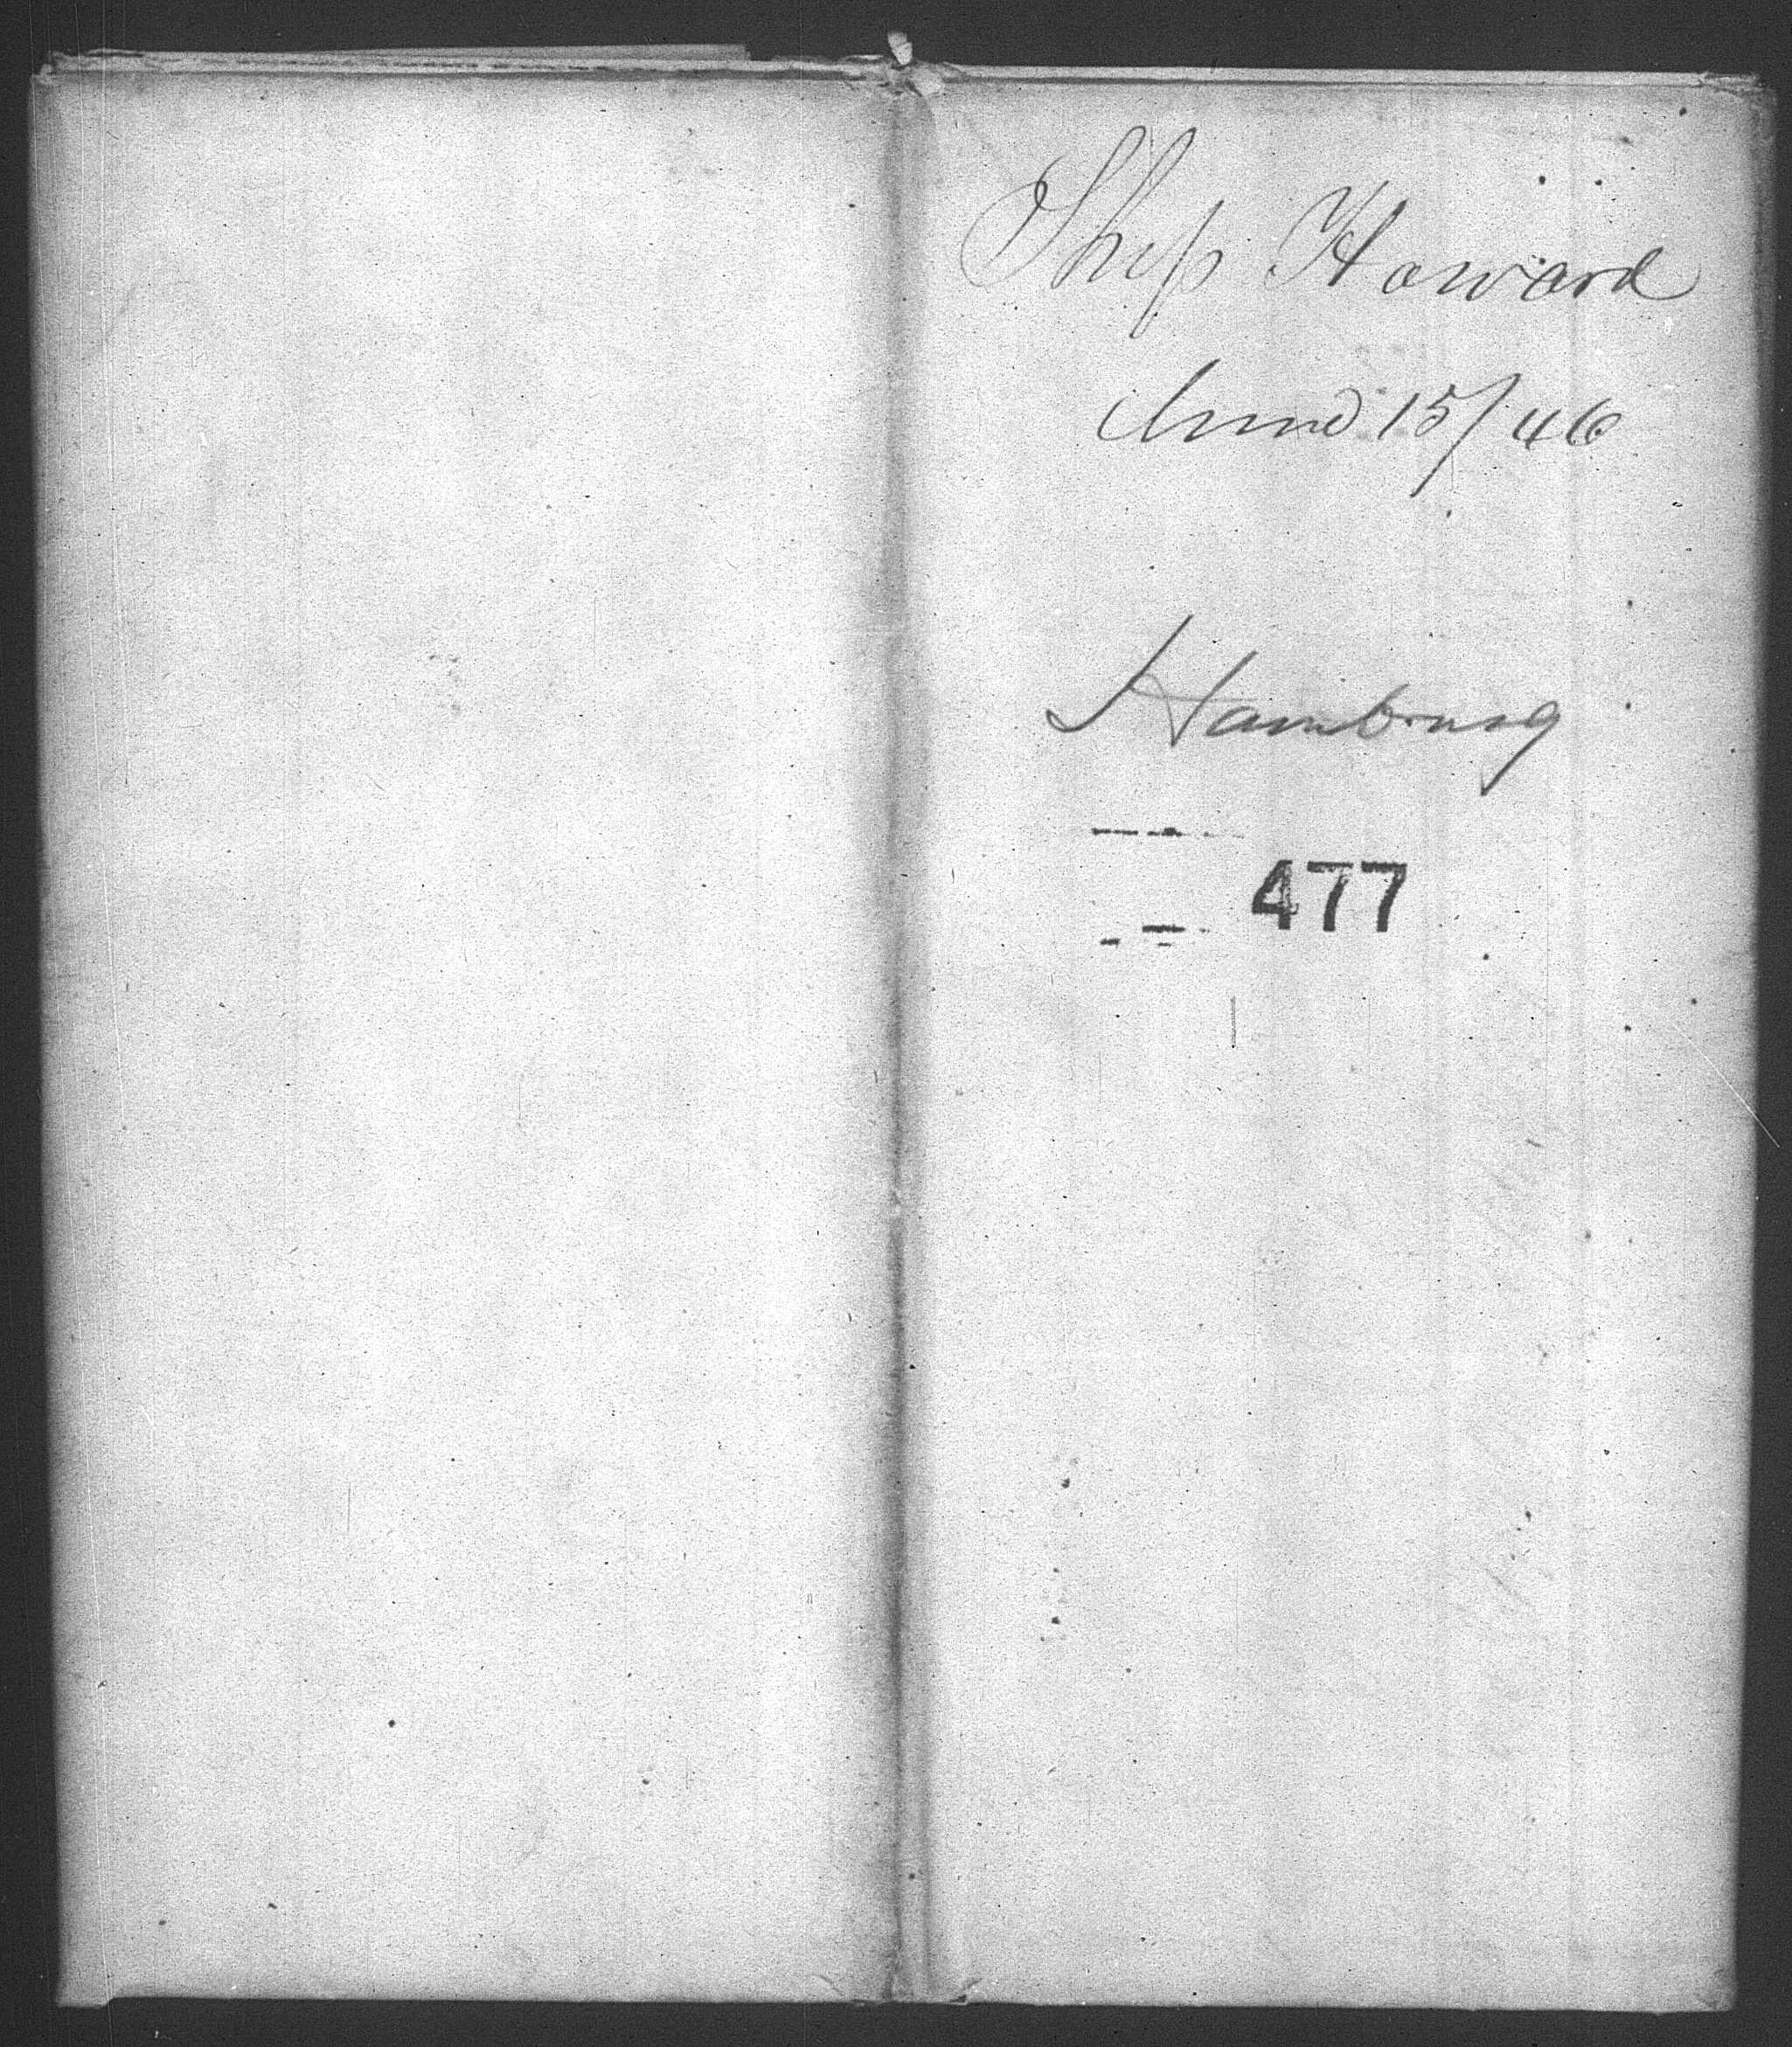 Ship Howard
June 15/46
Hamburg
477